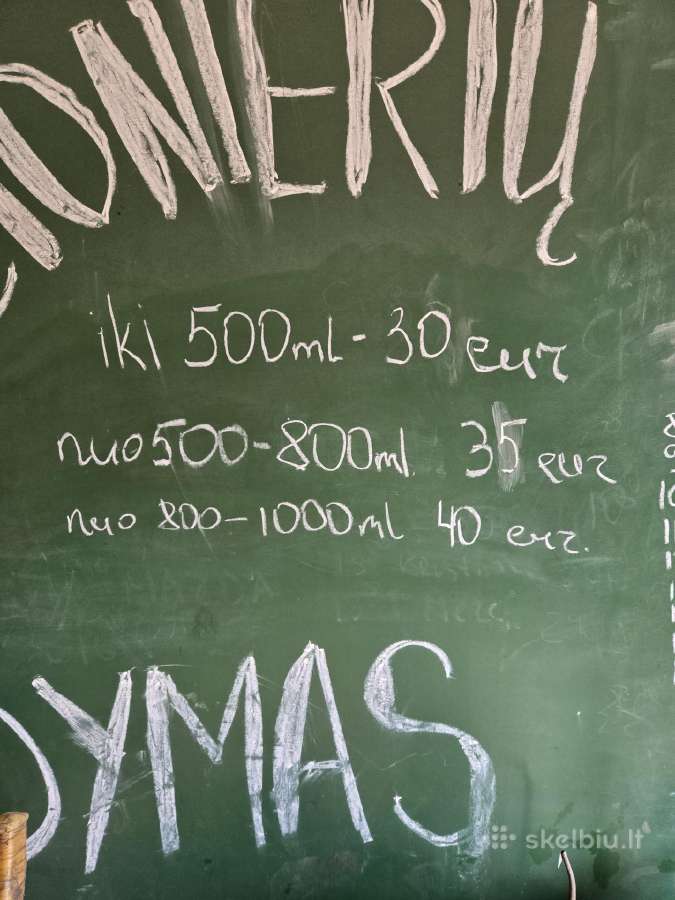 ONERIŲ
iki 500ml - 30 eur
nuo 500-800ml 35 eur
nuo 800-1000ml 40 eur.
DYMAS
skelbiu.lt